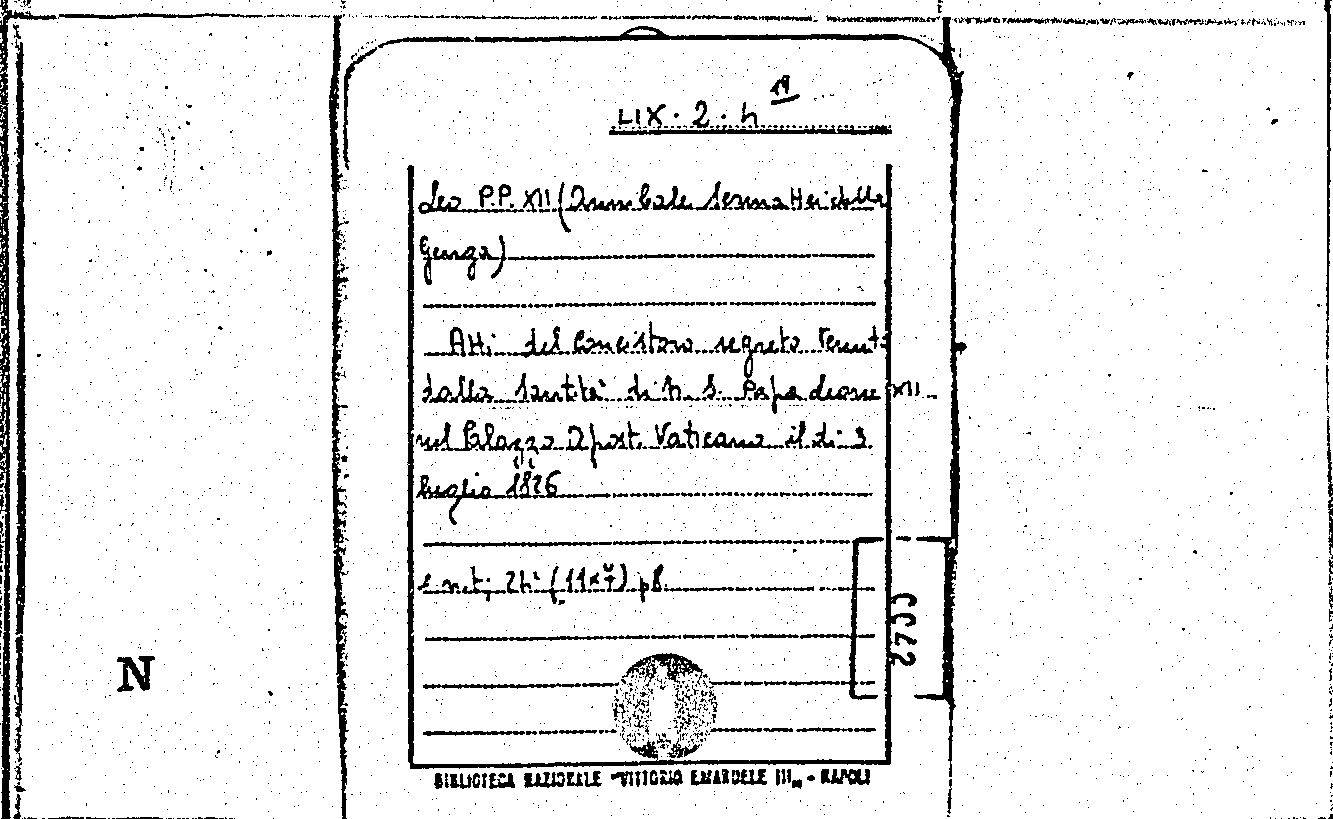 LIX. 2. h 11
Leo P.P. XII (Annibale Sermattei della
Genga)
Atti del Concistoro segreto tenuto
dalla Santità di N. S. Papa Leone XII
nel Palazzo Apost. Vaticano il di 3
luglio 1826
(11x7) p8.
N
BIBLIOTECA NAZIONALE "VITTORIO EMANUELE III" - NAPOLI